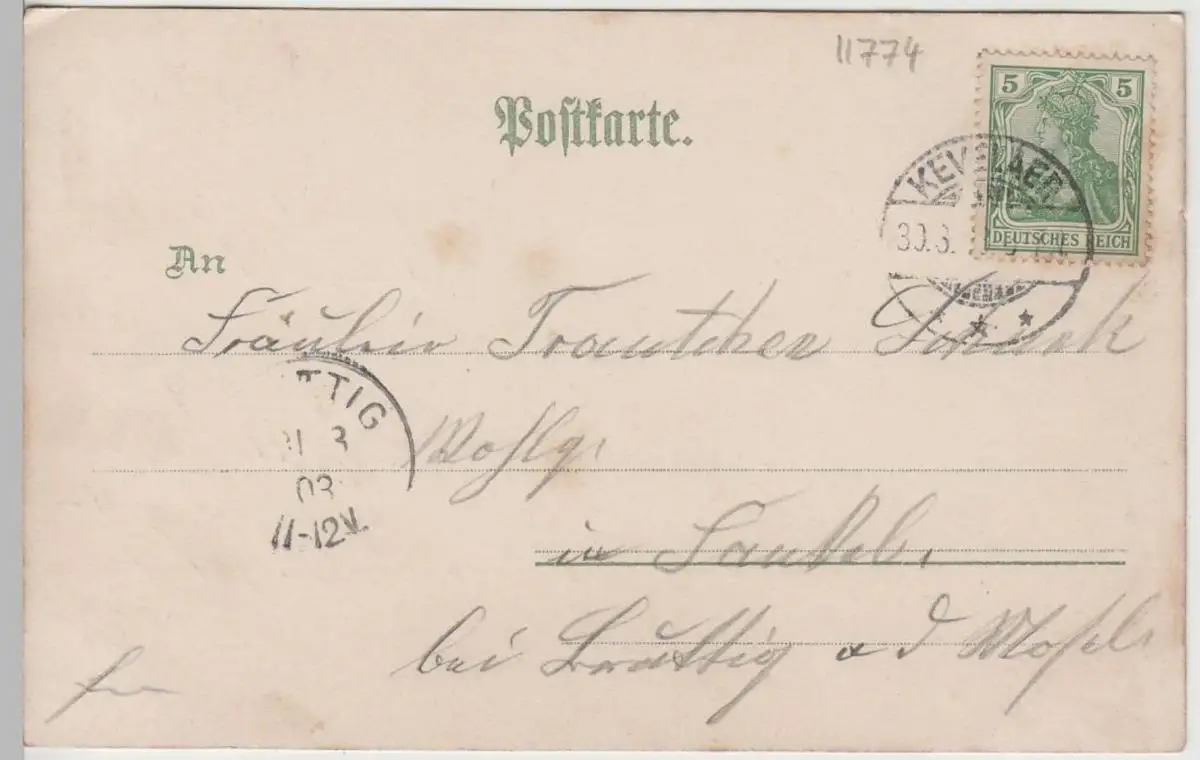 11774
Postkarte.
5 5
DEUTSCHES REICH
KEVELAER
30.3.
An
Fräulein Trautchen
TTIG
3
03
11-12V.
Wohlg.
in
bei Bruttig a d Mosel